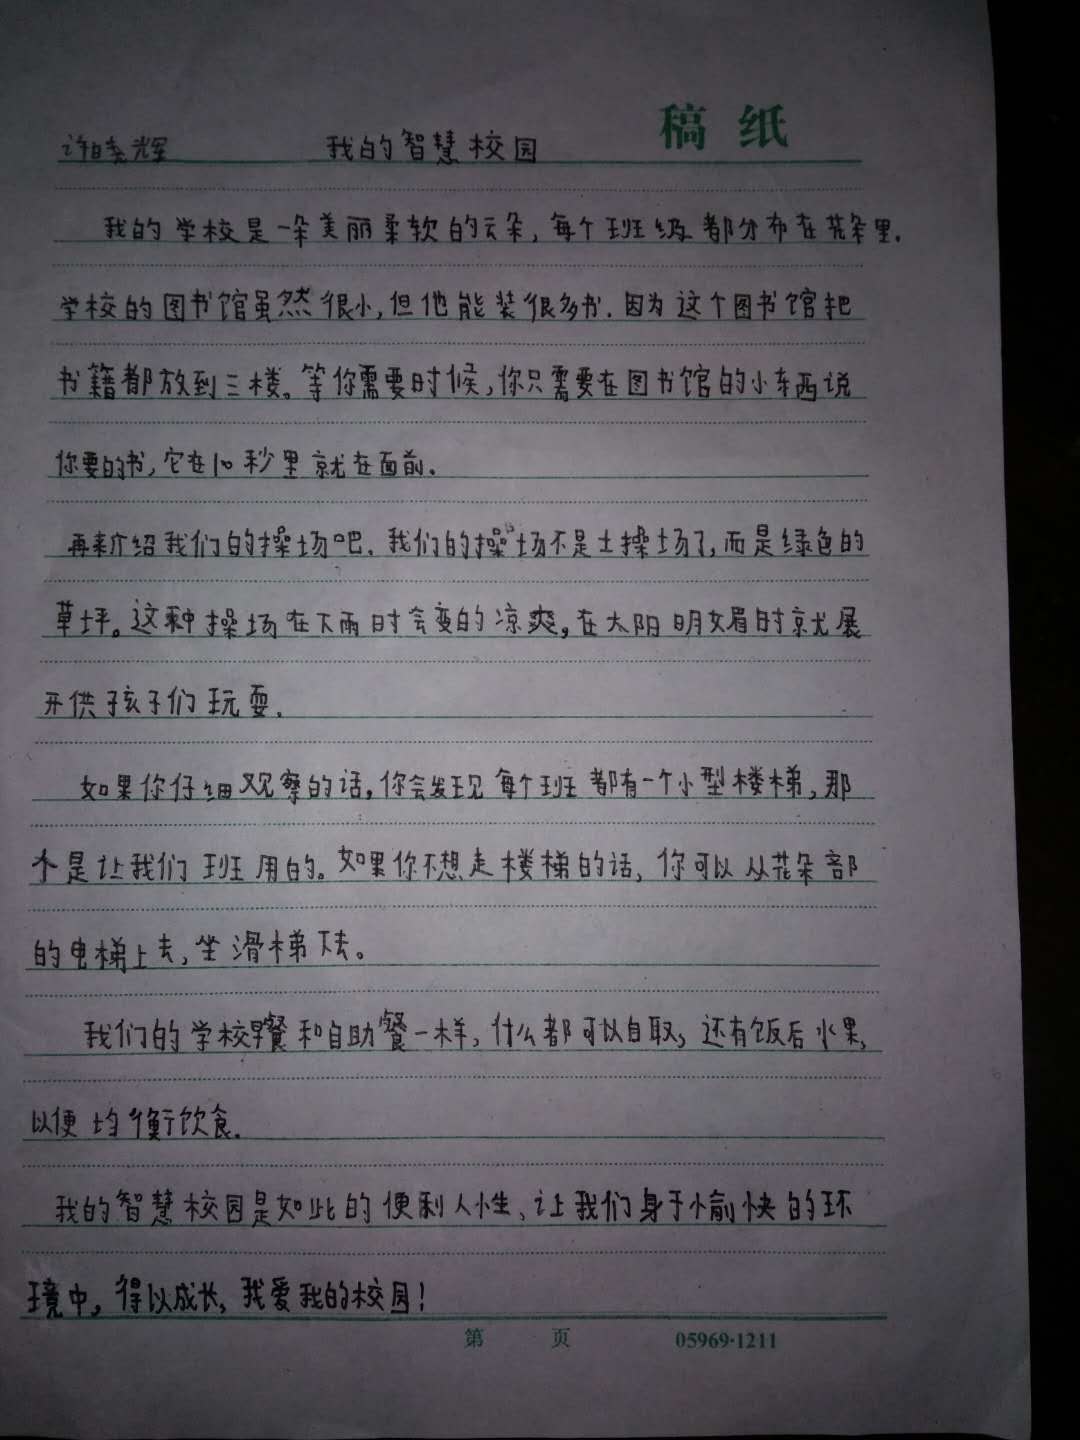 稿 纸
许晓辉 我的智慧校园
我的学校是一朵美丽柔软的云朵,每个班级都分布在花朵里.
学校的图书馆虽然很小,但他能装很多书.因为这个图书馆把
书籍都放到三楼。等你需要时候,你只需要在图书馆的小东西说
你要的书,它在10秒里就在面前.
再来介绍我们的操场吧.我们的操场不是土操场了,而是绿色的
草坪。这种操场在下雨时会变的凉爽,在太阳明媚时就展
开供孩子们玩耍.
如果你仔细观察的话,你会发现每个班都有一个小型楼梯,那
个是让我们班用的。如果你不想走楼梯的话,你可以从花朵部
的电梯上去,坐滑梯下去。
我们的学校早餐和自助餐一样,什么都可以自取,还有饭后水果,
以便均衡饮食.
我的智慧校园是如此的便利人性、让我们身于愉快的环
境中,得以成长,我爱我的校园!
第 页 05969·1211